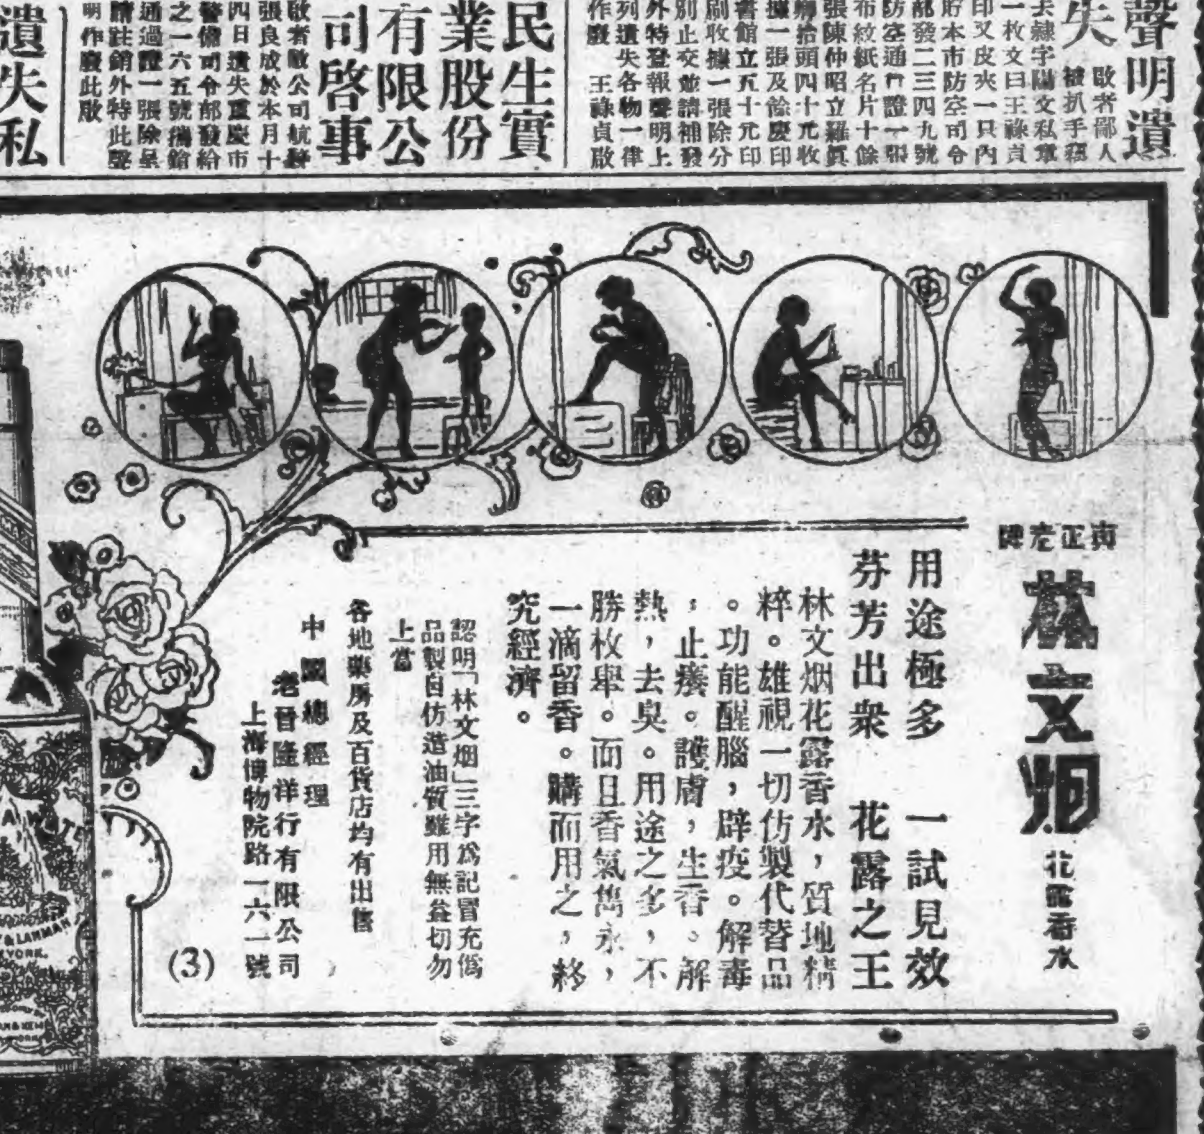 聲明遺
失 啟者鄙人
被扒手竊
去隸字陽文私章
一枚文曰王祿貞
印又皮夾一只內
貯本市防空司令
部發二三四九號
防空通行證一張
布紋紙名片十餘
張陳仲昭立羅質
卿抬頭四十元收
據一張及餘慶印
書館立五十元印
刷收據一張除分
別止交並請補發
外特登報聲明上
列遺失各物一律
作廢 王祿貞啟
民生實
業股份
有限公
司啓事
啟者敝公司航
張良成於本月十
四日遺失重慶市
警備司令部發給
之一六五號
通過證一張除呈
請註銷外特此聲
明作廢此啟
遺失私
南正老牌
林文烟
花露香水
用途極多 一試見效
芬芳出衆 花露之王
林文烟花露香水，質地精
粹。雄視一切仿製代替品
。功能醒腦，辟疫。解毒
，止癢。護膚，生香。解
熱，去臭。用途之多，不
勝枚舉。而且香氣雋永，
一滴留香。購而用之，終
究經濟。
認明「林文烟」三字爲記冒充僞
品製自仿造油質雖用無益切勿
上當
各地藥房及百貨店均有出售
中國總經理
老晉隆洋行有限公司
上海博物院路一六一號
(3)
A WATER
Y & LANMAN
YORK.